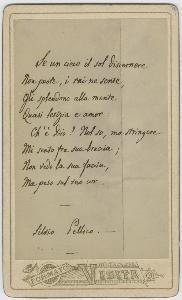 Se un cieco il sol discernere
Non puote, i rai ne sente,
Gli splendono alla mente
Quasi letizia e amor.
Ch'è Dio? Nol so, ma stringere
Mi sento fra sue braccia;
Non vidi la sua faccia,
Ma poso sul suo cor.
Silvio Pellico.
FORMATO
VISITA